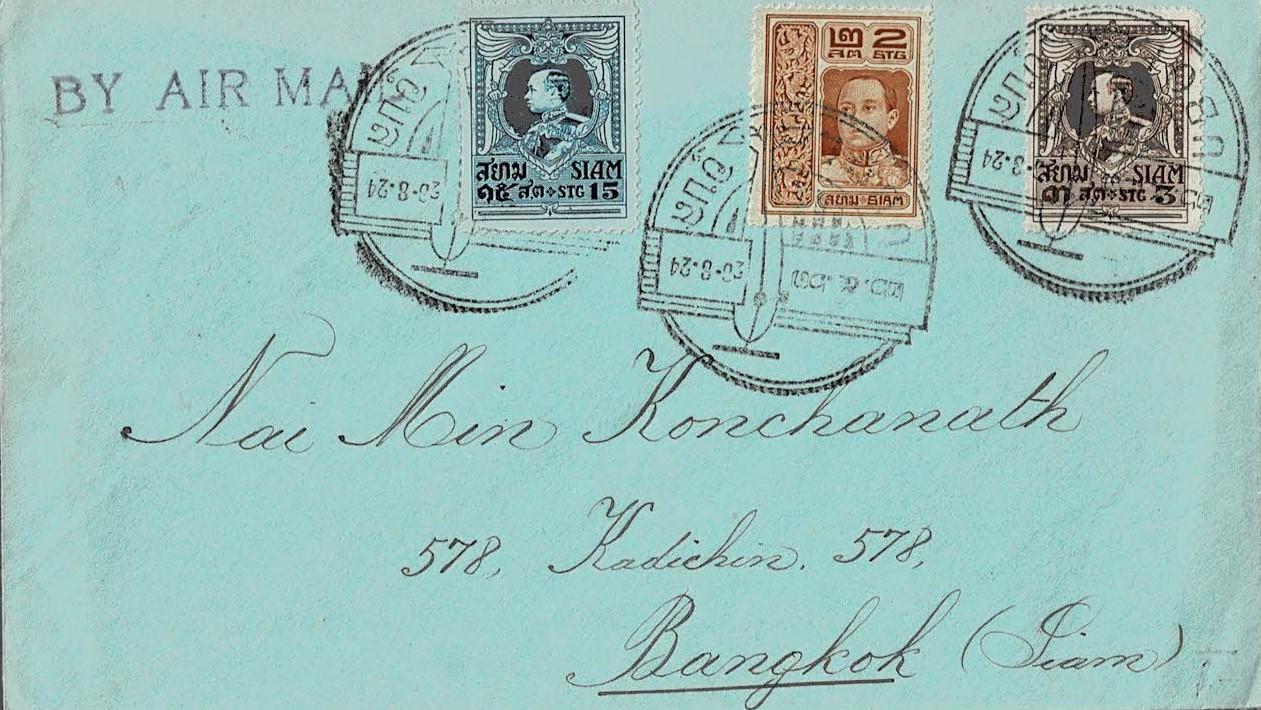 BY AIR MAIL
สยาม SIAM
๑๕ สต STG 15
๒ 2
สต STG
สยาม SIAM
สยาม SIAM
๓ สต STG 3
20·8·24
20·8·24
20·8·24
Nai Min Konchanath
578, Kadichin. 578,
Bangkok (Siam).